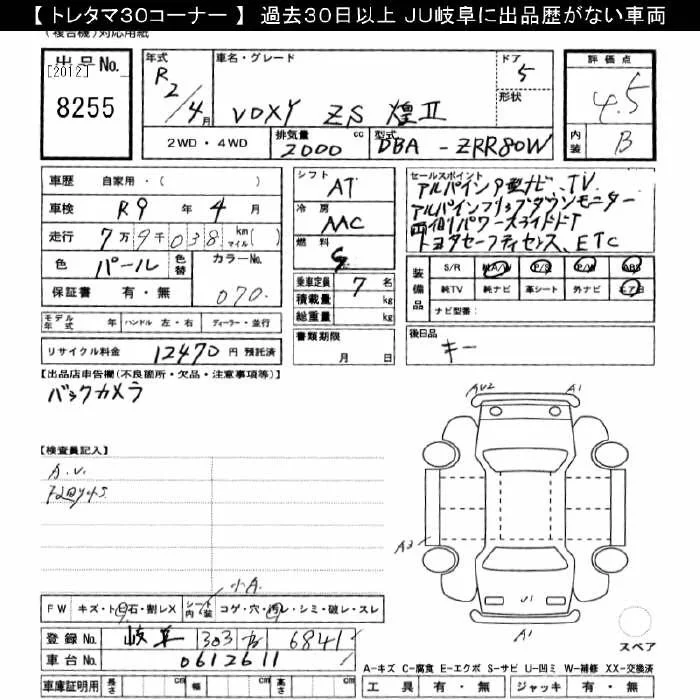 【 トレタマ30コーナー 】 過去30日以上 JU岐阜に出品歴がない車両
(複合機)対応用紙
出品No.
[2012]
8255
年式 R2/4月
車名・グレード VOXY ZS 煌Ⅱ
ドア 5
形状
評価点 4.5
内装 B
2WD・4WD
排気量 2000 cc
型式 DBA-ZRR80W
車歴 自家用・( )
車検 R9年 4月
走行 7万9千038 km マイル( )
色 パール 色替 カラーNo. 070
保証書 有・無
モデル年式 年 ハンドル 左・右 ディーラー・並行
リサイクル料金 12470 円 預託済
シフト AT
冷房 AAC
燃料 G
乗車定員 7 名
積載量 kg
総重量 kg
書類期限
月 日
セールスポイント
アルパインP型ナビ、TV
アルパインフリップダウンモニター
両側パワースライドDT
トヨタセーフティセンス、ETC
装備品
S/R A/W P/S P/W ABS
純TV 純ナビ 革シート 外ナビ エアB
ナビ型番:
後日品
キー
【出品店車告欄(不良箇所・欠品・注意事項等)】
バックカメラ
【検査員記入】
A.U.
小A
FW キズ・トビ石・割レX シート内装 コゲ・穴・汚レ・シミ・破レ・スレ
登録No. 岐阜 303 6841
車台No. 0612611
車庫証明用 長さ cm 幅 cm 高さ cm
AU2
A1
A2
U1
A1
スペア
A-キズ C-腐食 E-エクボ S-サビ U-凹ミ W-補修 XX-交換済
工具 有・無 ジャッキ 有・無